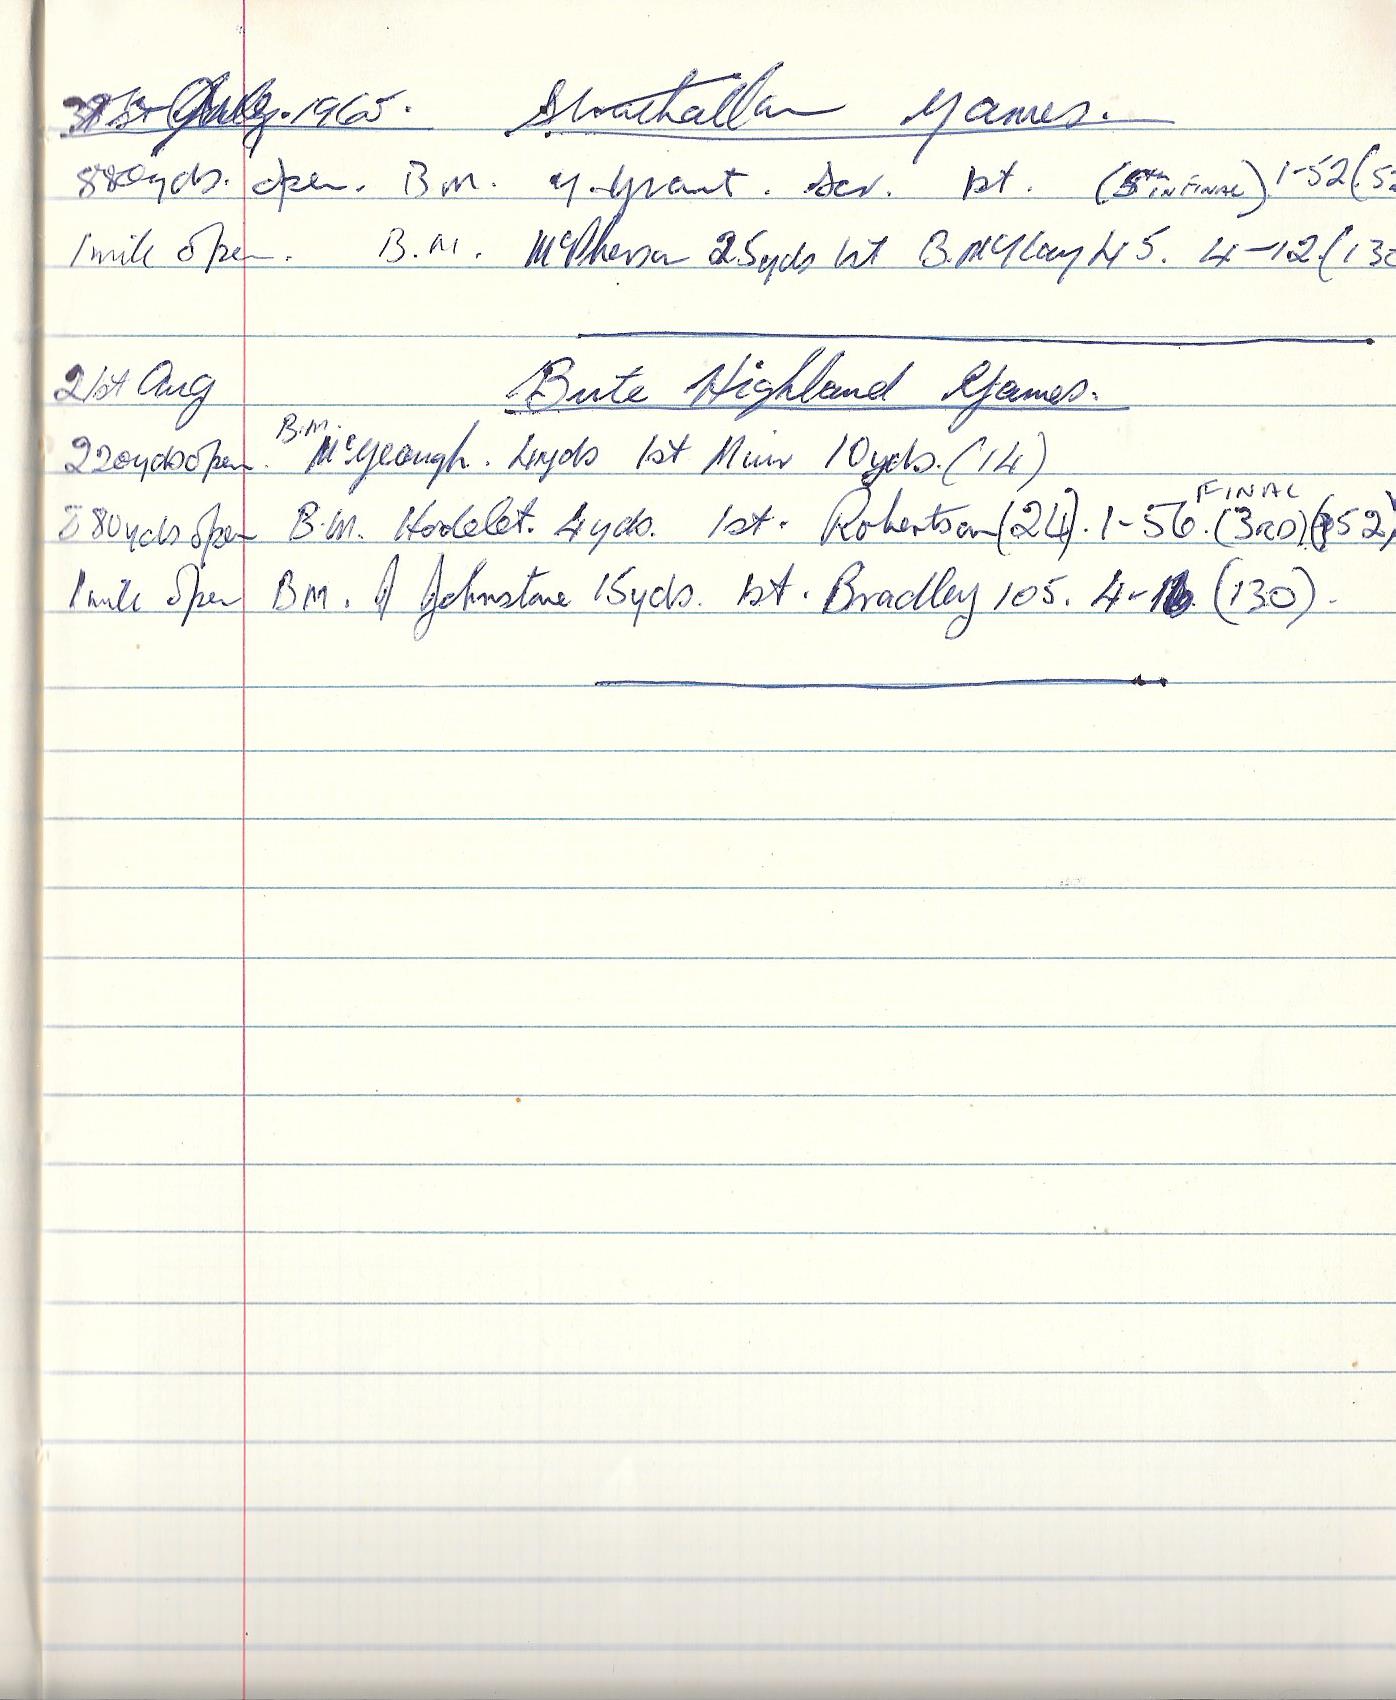 July. 1965. Strathallan Games.
880yds. open. B.M. G. Grant. Scr. 1st. (5th IN FINAL). 1-52 (52
1 mile open. B.M. McPherson 25yds 1st B. McKay 45. 4-12 (130
21st Aug Bute Highland Games.
220yds open. B.M. McGeough. 4yds 1st Muir 10yds. (14)
880yds open B.M. Hodelet. 4yds. 1st. Robertson (24). 1-56. FINAL (3RD) (52)
1 mile open BM. J Johnstone 15yds. 1st. Bradley 105. 4-16. (130).